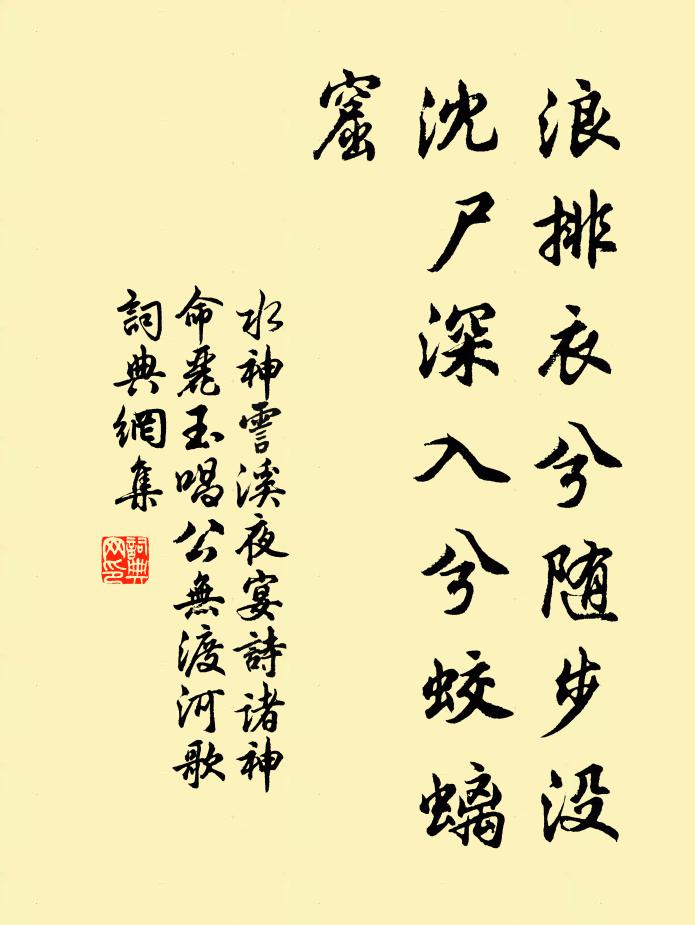 浪排衣兮随步没
沈尸深入兮蛟螭
窟
水神雩溪夜宴詩諸神
命麗玉唱公無渡河歌
詞典網集
詞典
网印